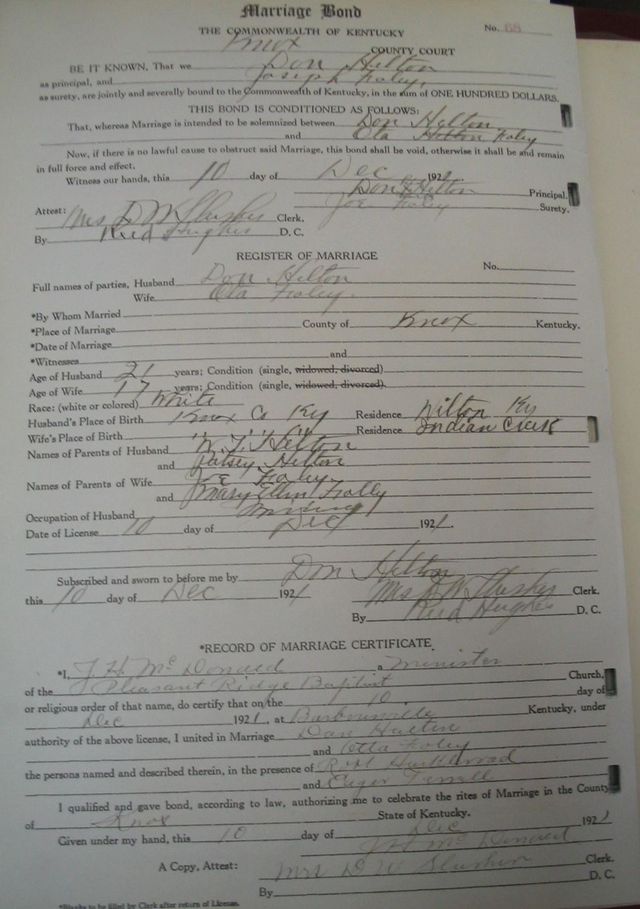 Marriage Bond
THE COMMONWEALTH OF KENTUCKY
No. 68
Knox COUNTY COURT
BE IT KNOWN, That we Don Hilton
as principal, and Joseph Foley
as surety, are jointly and severally bound to the Commonwealth of Kentucky, in the sum of ONE HUNDRED DOLLARS.
THIS BOND IS CONDITIONED AS FOLLOWS:
That, whereas Marriage is intended to be solemnized between Don Helton
and Ola Hilton Foley
Now, if there is no lawful cause to obstruct said Marriage, this bond shall be void, otherwise it shall be and remain
in full force and effect.
Witness our hands, this 10 day of Dec 1921
Don Hilton Principal.
Attest: Joe Foley Surety.
Mrs D W Slusher Clerk.
By Reed Hughes D. C.
REGISTER OF MARRIAGE
No.
Full names of parties, Husband Don Hilton
Wife Ola Foley
*By Whom Married
*Place of Marriage County of Knox Kentucky.
*Date of Marriage
*Witnesses and
Age of Husband 21 years; Condition (single, widowed, divorced)
Age of Wife 17 years; Condition (single, widowed, divorced).
Race: (white or colored) White
Husband's Place of Birth Knox Co Ky Residence Wilton Ky
Wife's Place of Birth " " " Residence Indian Creek
Names of Parents of Husband W. T. Helton
and Patsey Hilton
Names of Parents of Wife Joe Foley
and Mary Ellen Folly
Occupation of Husband Mining
Date of License 10 day of Dec 1921.
Subscribed and sworn to before me by Don Hilton
this 10 day of Dec 1921 Mrs D W Slusher Clerk.
By Reed Hughes D. C.
*RECORD OF MARRIAGE CERTIFICATE.
*I, J. H. McDonald a minister
of the Pleasant Ridge Baptist Church,
or religious order of that name, do certify that on the 10 day of
Dec 1921, at Barbourville Kentucky, under
authority of the above license, I united in Marriage Dan Hultin
and Olla Foley
the persons named and described therein, in the presence of Robt
and Terrell
I qualified and gave bond, according to law, authorizing me to celebrate the rites of Marriage in the County
of Knox State of Kentucky.
Given under my hand, this 10 day of Dec 1921
J H McDonald
A Copy, Attest: Mrs D. W Slusher Clerk.
By D. C.
*Blanks to be filled by Clerk after return of License.